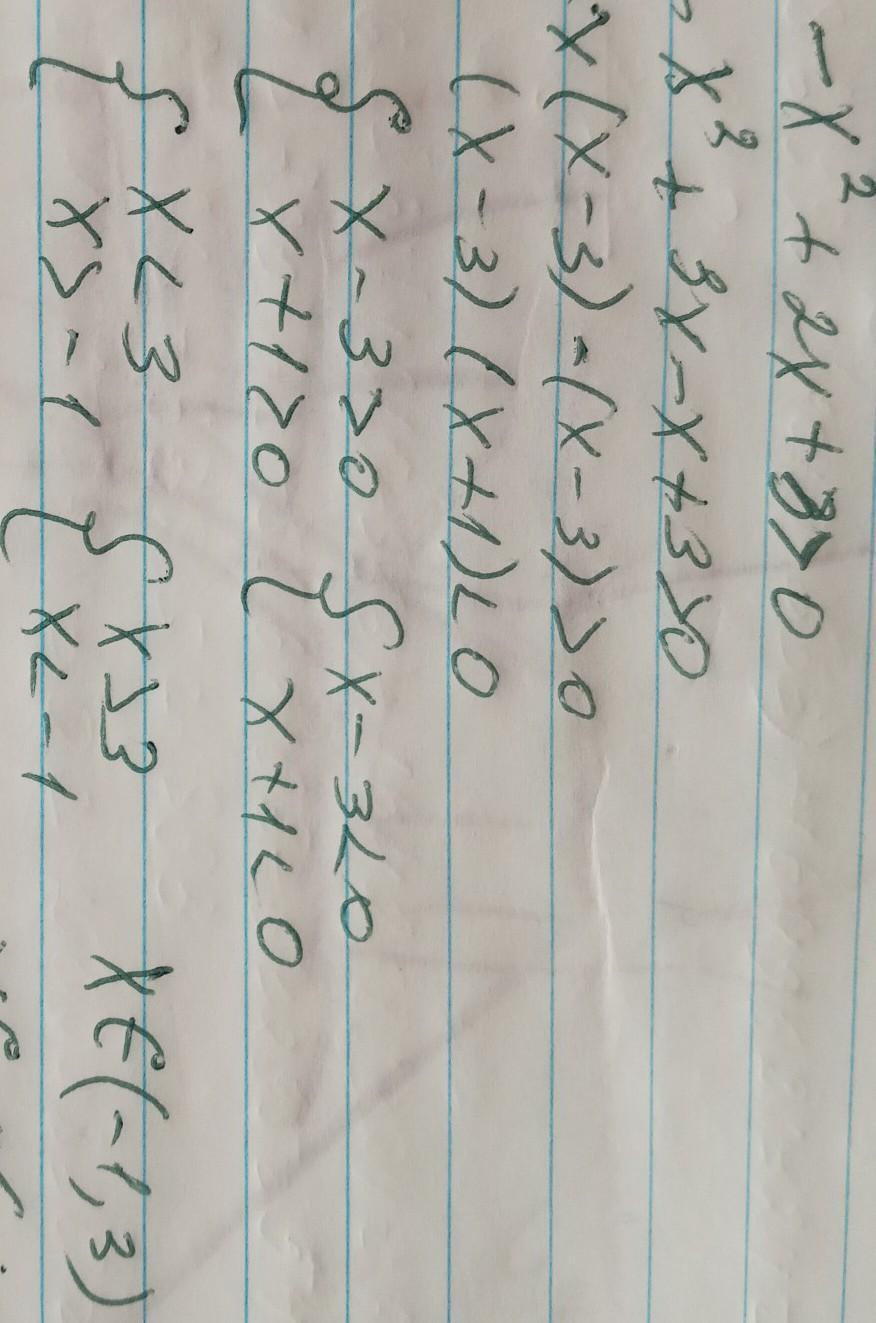 -x² + 2x + 3>0
-x² + 3x - x + 3>0
-x(x-3)-(x-3)>0
(x-3)(x+1)<0
{ x-3>0 { x-3<0
x+1>0 x+1<0
{ x<3 { x>3
x>-1 x<-1 x∈(-1,3)